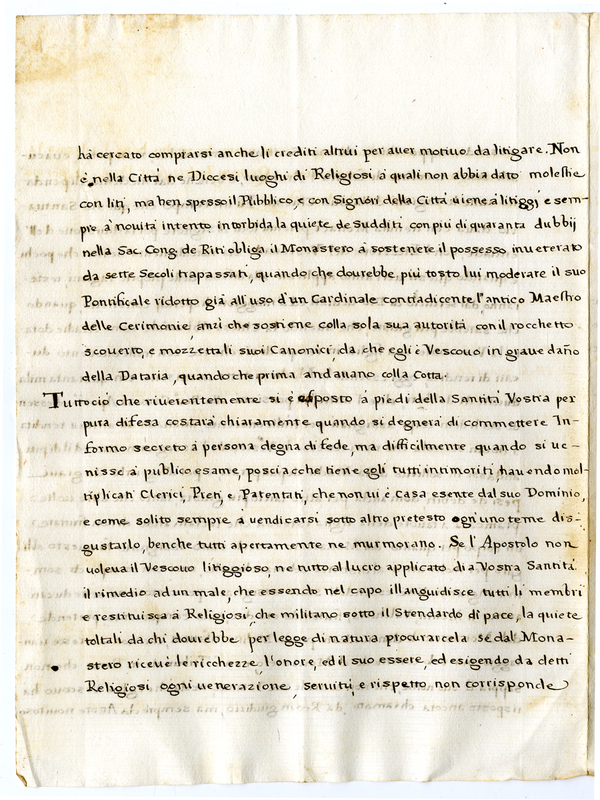 hà cercato comprarsi anche li crediti altrui per aver motivo da litigare. Non
è nella Città ne Diocesi luoghi di Religiosi à quali non abbia dato molestie
con liti, ma ben spesso il Pubblico, e con Signori della Città viene à litiggj e sem-
pre à novità intento intorbida la quiete de Sudditi con piú di quaranta dubbij
nella Sac. Cong. de Riti obliga il Monastero à sostenere il possesso inveterato
da sette Secoli trapassati, quando che dovrebbe piú tosto lui moderare il suo
Pontificale ridotto già all'uso d'un Cardinale contradicente l'antico Maestro
delle Cerimonie anzi che sostiene colla sola sua autorità con il rocchetto
scoverto, e mozzetta li suoi Canonici, da che egli è Vescovo in grave dano
della Dataria, quando che prima andavano colla Cotta.
Tuttociò che riverentemente si è esposto à piedi della Santità Vostra per
pura difesa costarà chiaramente quando si degnerà di commettere In-
formo secreto à persona degna di fede, ma difficilmente quando si ve-
nisse à publico esame, posciacche tiene egli tutti intimoriti, havendo mol-
tiplicati Clerici, Preti, e Patentati, che non vi è Casa esente dal suo Dominio,
e come solito sempre à vendicarsi sotto altro pretesto ogn'uno teme dis-
gustarlo, benche tutti apertamente ne murmorano. Se l'Apostolo non
voleva il Vescovo litiggioso, ne tutto al lucro applicato dia Vostra Santità
il rimedio ad un male, che essendo nel capo illanguidisce tutti li membri
e restituisca à Religiosi, che militano sotto il Stendardo di pace, la quiete
toltali da chi dovrebbe per legge di natura procurarcela se dal Mona-
stero riceve le ricchezze, l'onore, ed il suo essere, ed esigendo da detti
Religiosi ogni venerazione, servitù, e rispetto, non corrisponde